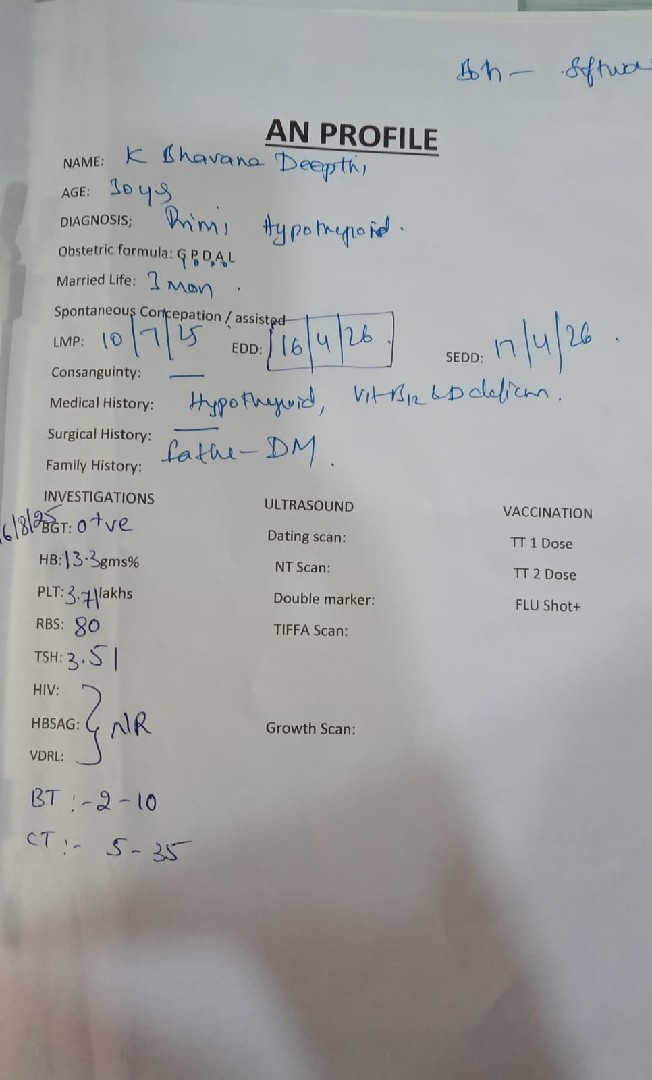 Both - Softwa
AN PROFILE
NAME: K Bhavana Deepthi
AGE: 30 yrs
DIAGNOSIS; Primi Hypothyroid.
Obstetric formula: G P D A L
Married Life: 3 mon
Spontaneous Contcepation / assisted
LMP: 10/7/25 EDD: 16/4/26. SEDD: 17/4/26.
Consanguinty: —
Medical History: Hypothyroid, Vit-B12 & D deficien.
Surgical History: —
Family History: father - DM.
INVESTIGATIONS ULTRASOUND VACCINATION
6/8/25
BGT: O+ve Dating scan: TT 1 Dose
HB: 13.3gms% NT Scan: TT 2 Dose
PLT: 3.71lakhs Double marker: FLU Shot+
RBS: 80 TIFFA Scan:
TSH: 3.51
HIV:
HBSAG: } NR Growth Scan:
VDRL:
BT :- 2 - 10
CT :- 5 - 35